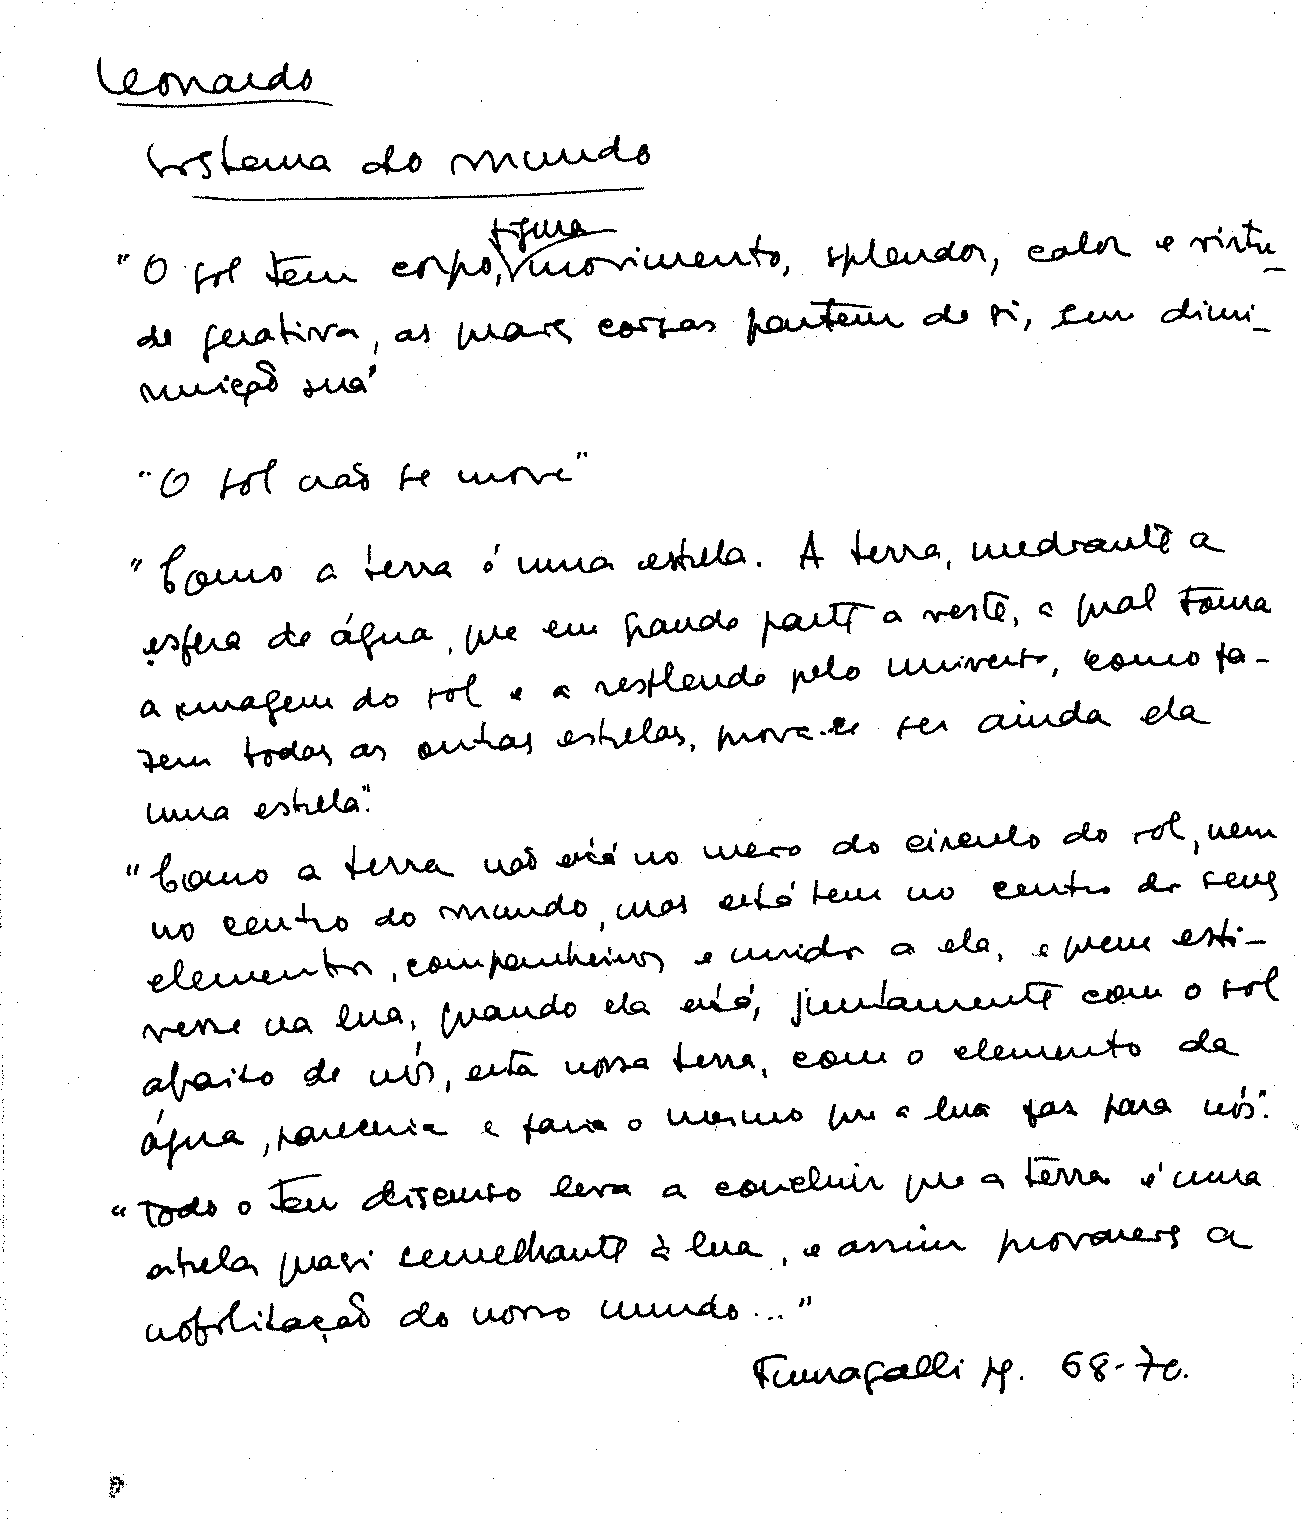 Leonardo
Sistema do mundo
figura
"O sol tem corpo, movimento, splendor, calor e virtu-
de gerativa, as quais coisas partem de si, sem dimi-
nuição sua"
"O sol não se move"
"Como a terra é uma estrela. A terra, mediante a
esfera de água, que em grande parte a veste, a qual toma
a imagem do sol e a resplende pelo universo, como fa-
zem todas as outras estrelas, prova-se ser ainda ela
uma estrela".
"Como a terra não está no meio do circulo do sol, nem
no centro do mundo, mas está bem no centro de seus
elementos, companheiros e unidos a ela, e quem esti-
vesse na lua, quando ela está, juntamente com o sol
abaixo de nós, esta nossa terra, com o elemento da
água, pareceria e faria o mesmo que a lua faz para nós".
"Todo o teu discurso leva a concluir que a terra é uma
estrela quasi semelhante à lua, e assim provareis a
nobilitação do nosso mundo..."
Fumagalli pp. 68-70.